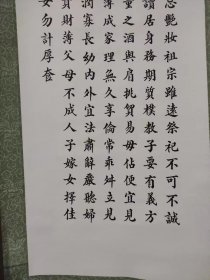 忌艷妝祖宗雖遠祭祀不可不誠
讀居身務期質樸教子要有義方
量之酒與肩挑貿易毋佔便宜見
薄成家理無久享倫常乖舛立見
潤寡長幼內外宜法肅辭嚴聽婦
資財薄父母不成人子嫁女擇佳
女勿計厚奩